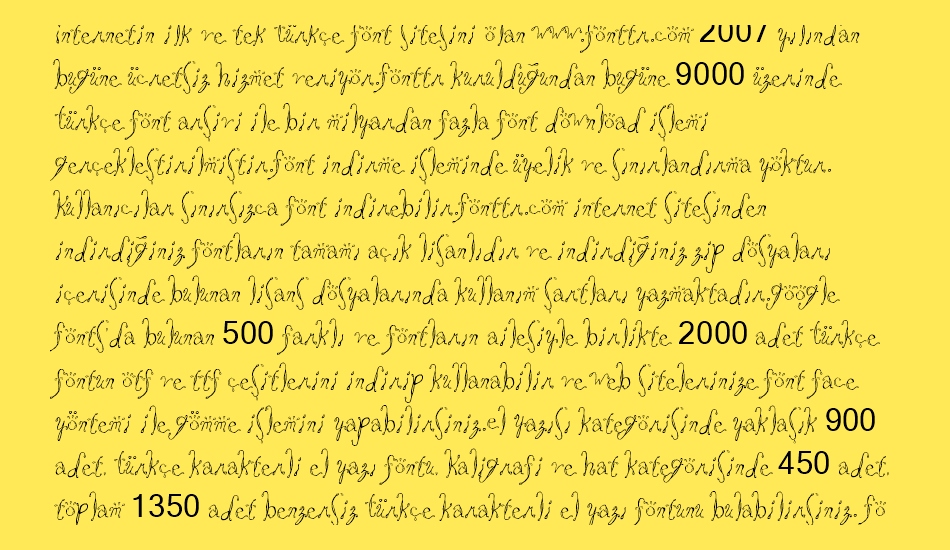 internetin ilk ve tek türkçe font sitesini olan www.fonttr.com 2007 yılından
bugüne ücretsiz hizmet veriyor.fonttr kurulduğundan bugüne 9000 üzerinde
türkçe font arşivi ile bir milyardan fazla font download işlemi
gerçekleştirilmiştir.font indirme işleminde üyelik ve sınırlandırma yoktur.
kullanıcılar sınırsızca font indirebilir.fonttr.com internet sitesinden
indirdiğiniz fontların tamamı açık lisanlıdır ve indirdiğiniz zip dosyaları
içerisinde bulunan lisans dosyalarında kullanım şartları yazmaktadır.google
fonts'da bulunan 500 farklı ve fontların ailesiyle birlikte 2000 adet türkçe
fontun otf ve ttf çeşitlerini indirip kullanabilir ve web sitelerinize font face
yöntemi ile gömme işlemini yapabilirsiniz..el yazısı kategorisinde yaklaşık 900
adet, türkçe karakterli el yazı fontu, kaligrafi ve hat kategorisinde 450 adet,
toplam 1350 adet benzersiz türkçe karakterli el yazı fontunu bulabilirsiniz. fo